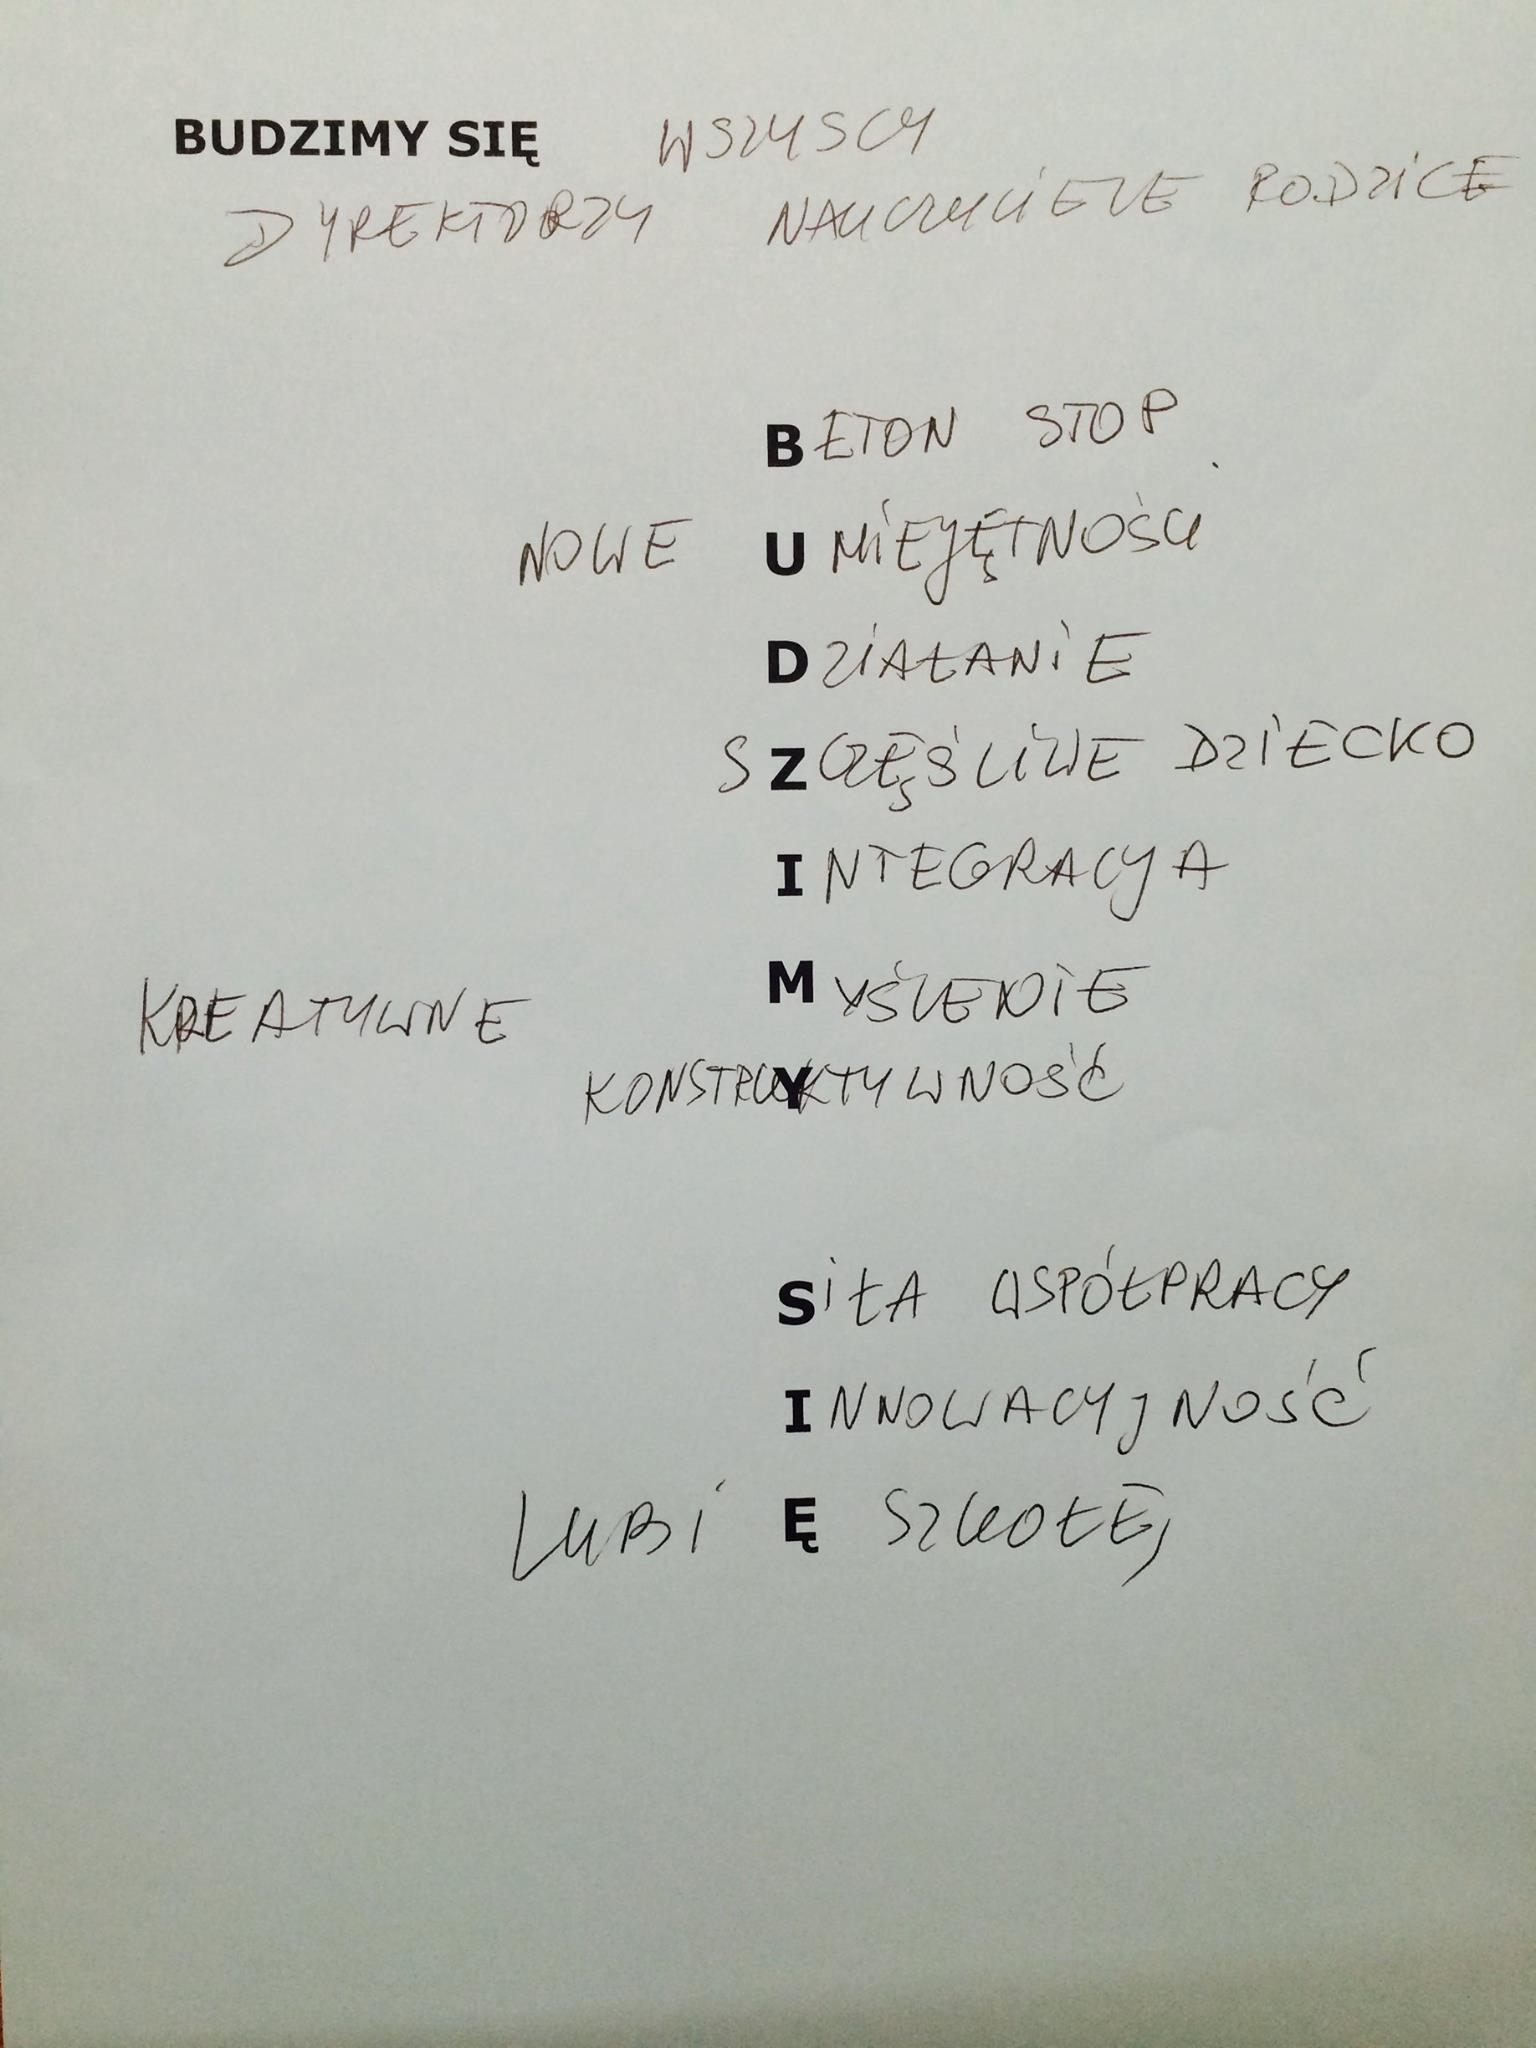 BUDZIMY SIĘ WSZYSCY
DYREKTORZY NAUCZYCIELE RODZICE
BETON STOP
NOWE UMIEJĘTNOŚCI
DZIAŁANIE
SZCZĘŚLIWE DZIECKO
INTEGRACJA
KREATYWNE MYŚLENIE
KONSTRUKTYWNOŚĆ
SIŁA WSPÓŁPRACY
INNOWACYJNOŚĆ
LUBIĘ SZKOŁĘ